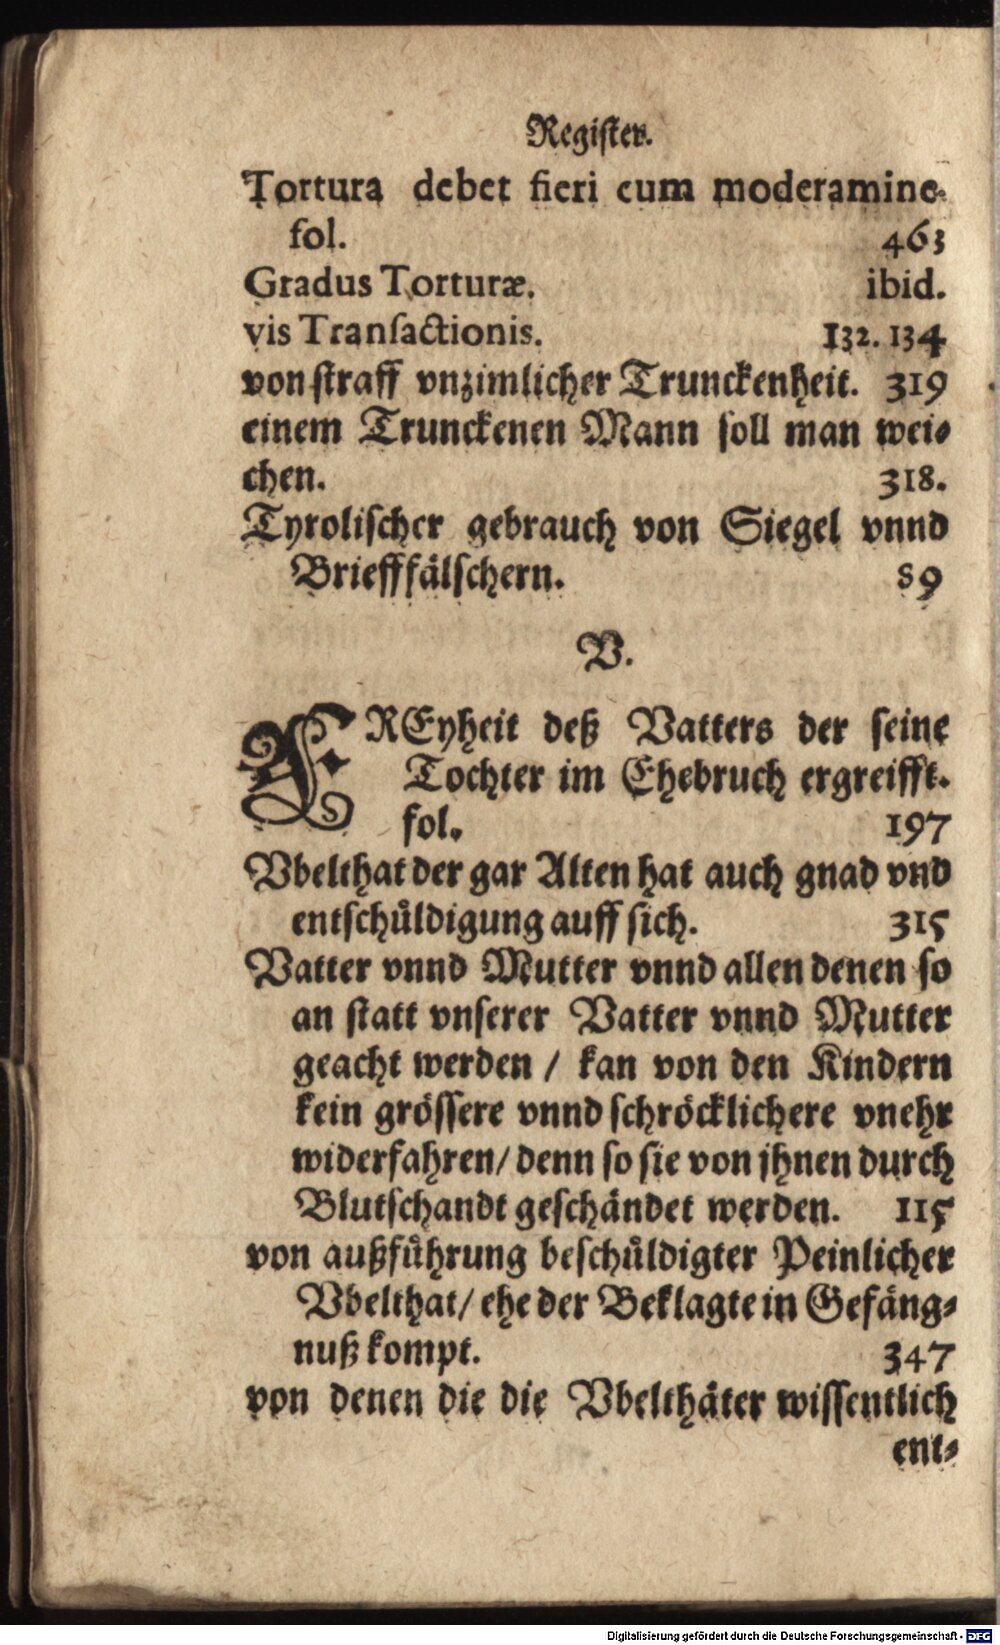 Register.
Tortura debet fieri cum moderamine.
fol. 463
Gradus Torturæ. ibid.
vis Transactionis. 132. 134
von straff vnzimlicher Trunckenheit. 319
einem Trunckenen Mann soll man wei-
chen. 318.
Tyrolischer gebrauch von Siegel vnnd
Briefffälschern. 89
V.
FREyheit deß Vatters der seine
Tochter im Ehebruch ergreifft.
fol. 197
Vbelthat der gar Alten hat auch gnad vnd
entschůldigung auff sich. 315
Vatter vnnd Mutter vnnd allen denen so
an statt vnserer Vatter vnnd Mutter
geacht werden / kan von den Kindern
kein grössere vnnd schröcklichere vnehr
widerfahren/ denn so sie von jhnen durch
Blutschandt geschändet werden. 115
von außführung beschůldigter Peinlicher
Vbelthat/ ehe der Beklagte in Gefäng-
nuß kompt. 347
von denen die die Vbelthäter wissentlich
ent-
Digitalisierung gefördert durch die Deutsche Forschungsgemeinschaft - DFG